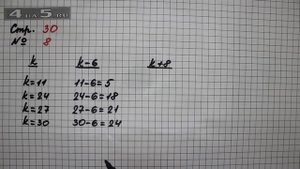 4apok.TV
Стр. 30
№ 8
k k-6 k+8
k=11 11-6=5
k=24 24-6=18
k=27 27-6=21
k=30 30-6=24